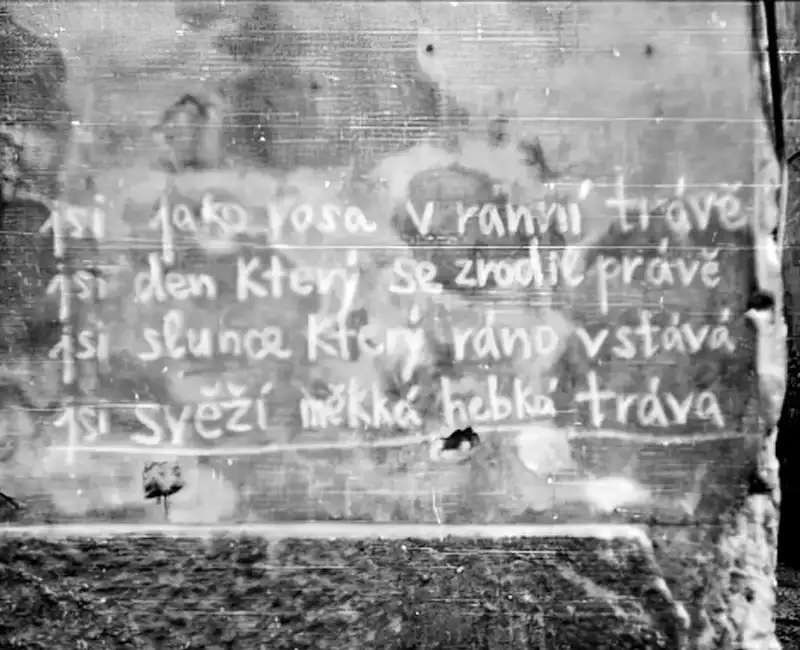 jsi jako rosa v ranní trávě
jsi den který se zrodil právě
jsi slunce který ráno vstává
jsi svěží měkká hebká tráva